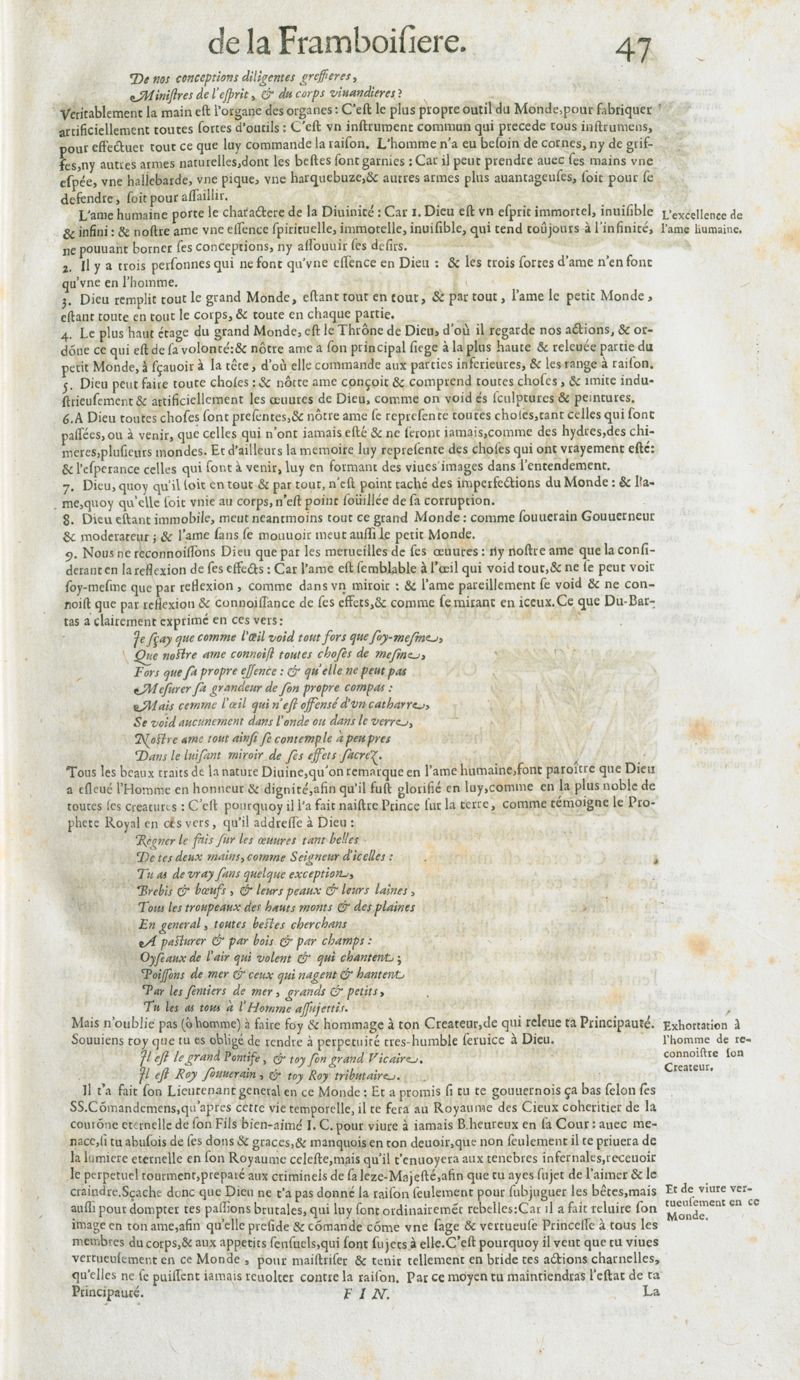 de la Framboiſiere. 47
De nos conceptions diligentes greffieres,
Miniſtres de l'eſprit, & du corps viuandieres?
Veritablement la main eſt l'organe des organes : C'eſt le plus propre outil du Monde, pour fabriquer
artificiellement toutes ſortes d'outils : C'eſt vn inſtrument commun qui precede tous inſtrumens,
pour effectuer tout ce que luy commande la raiſon. L'homme n'a eu beſoin de cornes, ny de grif-
fes, ny autres armes naturelles, dont les beſtes ſont garnies : Car il peut prendre auec ſes mains vne
eſpée, vne hallebarde, vne pique, vne harquebuze, & autres armes plus auantageuſes, ſoit pour ſe
defendre, ſoit pour aſſaillir.
L'ame humaine porte le charactere de la Diuinité : Car 1. Dieu eſt vn eſprit immortel, inuiſible
& infini : & noſtre ame vne eſſence ſpirituelle, immortelle, inuiſible, qui tend toûjours à l'infinité,
ne pouuant borner ſes conceptions, ny aſſouuir ſes deſirs.
L'excellence de
l'ame humaine.
2. Il y a trois perſonnes qui ne font qu'vne eſſence en Dieu : & les trois ſortes d'ame n'en font
qu'vne en l'homme.
3. Dieu remplit tout le grand Monde, eſtant tout en tout, & par tout, l'ame le petit Monde,
eſtant toute en tout le corps, & toute en chaque partie.
4. Le plus haut étage du grand Monde, eſt le Thrône de Dieu, d'où il regarde nos actions, & or-
dõne ce qui eſt de ſa volonté : & nôtre ame a ſon principal ſiege à la plus haute & releuée partie du
petit Monde, à ſçauoir à la tête, d'où elle commande aux parties inferieures, & les range à raiſon.
5. Dieu peut faire toute choſes : & nôtre ame conçoit & comprend toutes choſes, & imite indu-
ſtrieuſement & artificiellement les œuures de Dieu, comme on void és ſculptures & peintures.
6. A Dieu toutes choſes ſont preſentes, & nôtre ame ſe repreſente toutes choſes, tant celles qui ſont
paſſées, ou à venir, que celles qui n'ont iamais eſté & ne ſeront iamais, comme des hydres, des chi-
meres, pluſieurs mondes. Et d'ailleurs la memoire luy repreſente des choſes qui ont vrayement eſté:
& l'eſperance celles qui ſont à venir, luy en formant des viues images dans l'entendement.
7. Dieu, quoy qu'il ſoit en tout & par tout, n'eſt point taché des imperfections du Monde : & l'a-
me, quoy qu'elle ſoit vnie au corps, n'eſt point ſoüillée de ſa corruption.
8. Dieu eſtant immobile, meut neantmoins tout ce grand Monde : comme ſouuerain Gouuerneur
& moderateur ; & l'ame ſans ſe mouuoir meut auſſi le petit Monde.
9. Nous ne reconnoiſſons Dieu que par les merueilles de ſes œuures : ny noſtre ame que la conſi-
derant en la reflexion de ſes effects : Car l'ame eſt ſemblable à l'œil qui void tout, & ne ſe peut voir
ſoy-meſme que par reflexion, comme dans vn miroir : & l'ame pareillement ſe void & ne con-
noiſt que par reflexion & connoiſſance de ſes effets, & comme ſe mirant en iceux. Ce que Du-Bar-
tas a clairement exprimé en ces vers :
Je ſçay que comme l'œil void tout fors que ſoy-meſme,
Que noſtre ame connoiſt toutes choſes de meſme,
Fors que ſa propre eſſence : & qu'elle ne peut pas
Meſurer ſa grandeur de ſon propre compas :
Mais cemme l'œil qui n'eſt offenſé d'vn catharre,
Se void aucunement dans l'onde ou dans le verre,
Noſtre ame tout ainſi ſe contemple à peu pres
Dans le luiſant miroir de ſes effets ſacrez.
Tous les beaux traits de la nature Diuine, qu'on remarque en l'ame humaine, font paroître que Dieu
a eſleué l'Homme en honneur & dignité, afin qu'il fuſt glorifié en luy, comme en la plus noble de
toutes ſes creatures : C'eſt pourquoy il l'a fait naiſtre Prince ſur la terre, comme témoigne le Pro-
phete Royal en ces vers, qu'il addreſſe à Dieu :
Regner le fais ſur les œuures tant belles
De tes deux mains, comme Seigneur d'icelles :
Tu as de vray ſans quelque exception,
Brebis & bœufs, & leurs peaux & leurs laines,
Tous les troupeaux des hauts monts & des plaines
En general, toutes beſtes cherchans
A paſturer & par bois & par champs :
Oyſeaux de l'air qui volent & qui chantent ;
Poiſſons de mer & ceux qui nagent & hantent
Par les ſentiers de mer, grands & petits,
Tu les as tous à l'Homme aſſujettis.
Mais n'oublie pas (ô homme) à faire foy & hommage à ton Createur, de qui releue ta Principauté.
Souuiens toy que tu es obligé de rendre à perpetuité tres-humble ſeruice à Dieu.
Exhortation à
l'homme de re-
connoiſtre ſon
Createur.
Il eſt le grand Pontife, & toy ſon grand Vicaire.
Il eſt Roy ſouuerain, & toy Roy tributaire.
Il t'a fait ſon Lieutenant general en ce Monde : Et a promis ſi tu te gouuernois ça bas ſelon ſes
SS. Cõmandemens, qu'apres cette vie temporelle, il te fera au Royaume des Cieux coheritier de la
courõne eternelle de ſon Fils bien-aimé I. C. pour viure à iamais B.heureux en ſa Cour : auec me-
nace, ſi tu abuſois de ſes dons & graces, & manquois en ton deuoir, que non ſeulement il te priuera de
la lumiere eternelle en ſon Royaume celeſte, mais qu'il t'enuoyera aux tenebres infernales, receuoir
le perpetuel tourment, preparé aux criminels de ſa leze-Majeſté, afin que tu ayes ſujet de l'aimer & le
craindre. Sçache donc que Dieu ne t'a pas donné la raiſon ſeulement pour ſubjuguer les bêtes, mais
auſſi pour dompter tes paſſions brutales, qui luy ſont ordinairemẽt rebelles: Car il a fait reluire ſon
image en ton ame, afin qu'elle preſide & cõmande cõme vne ſage & vertueuſe Princeſſe à tous les
Et de viure ver-
tueuſement en ce
Monde.
membres du corps, & aux appetits ſenſuels, qui ſont ſujets à elle. C'eſt pourquoy il veut que tu viues
vertueuſement en ce Monde, pour maiſtriſer & tenir tellement en bride tes actions charnelles,
qu'elles ne ſe puiſſent iamais reuolter contre la raiſon. Par ce moyen tu maintiendras l'eſtat de ta
Principauté. FIN. La